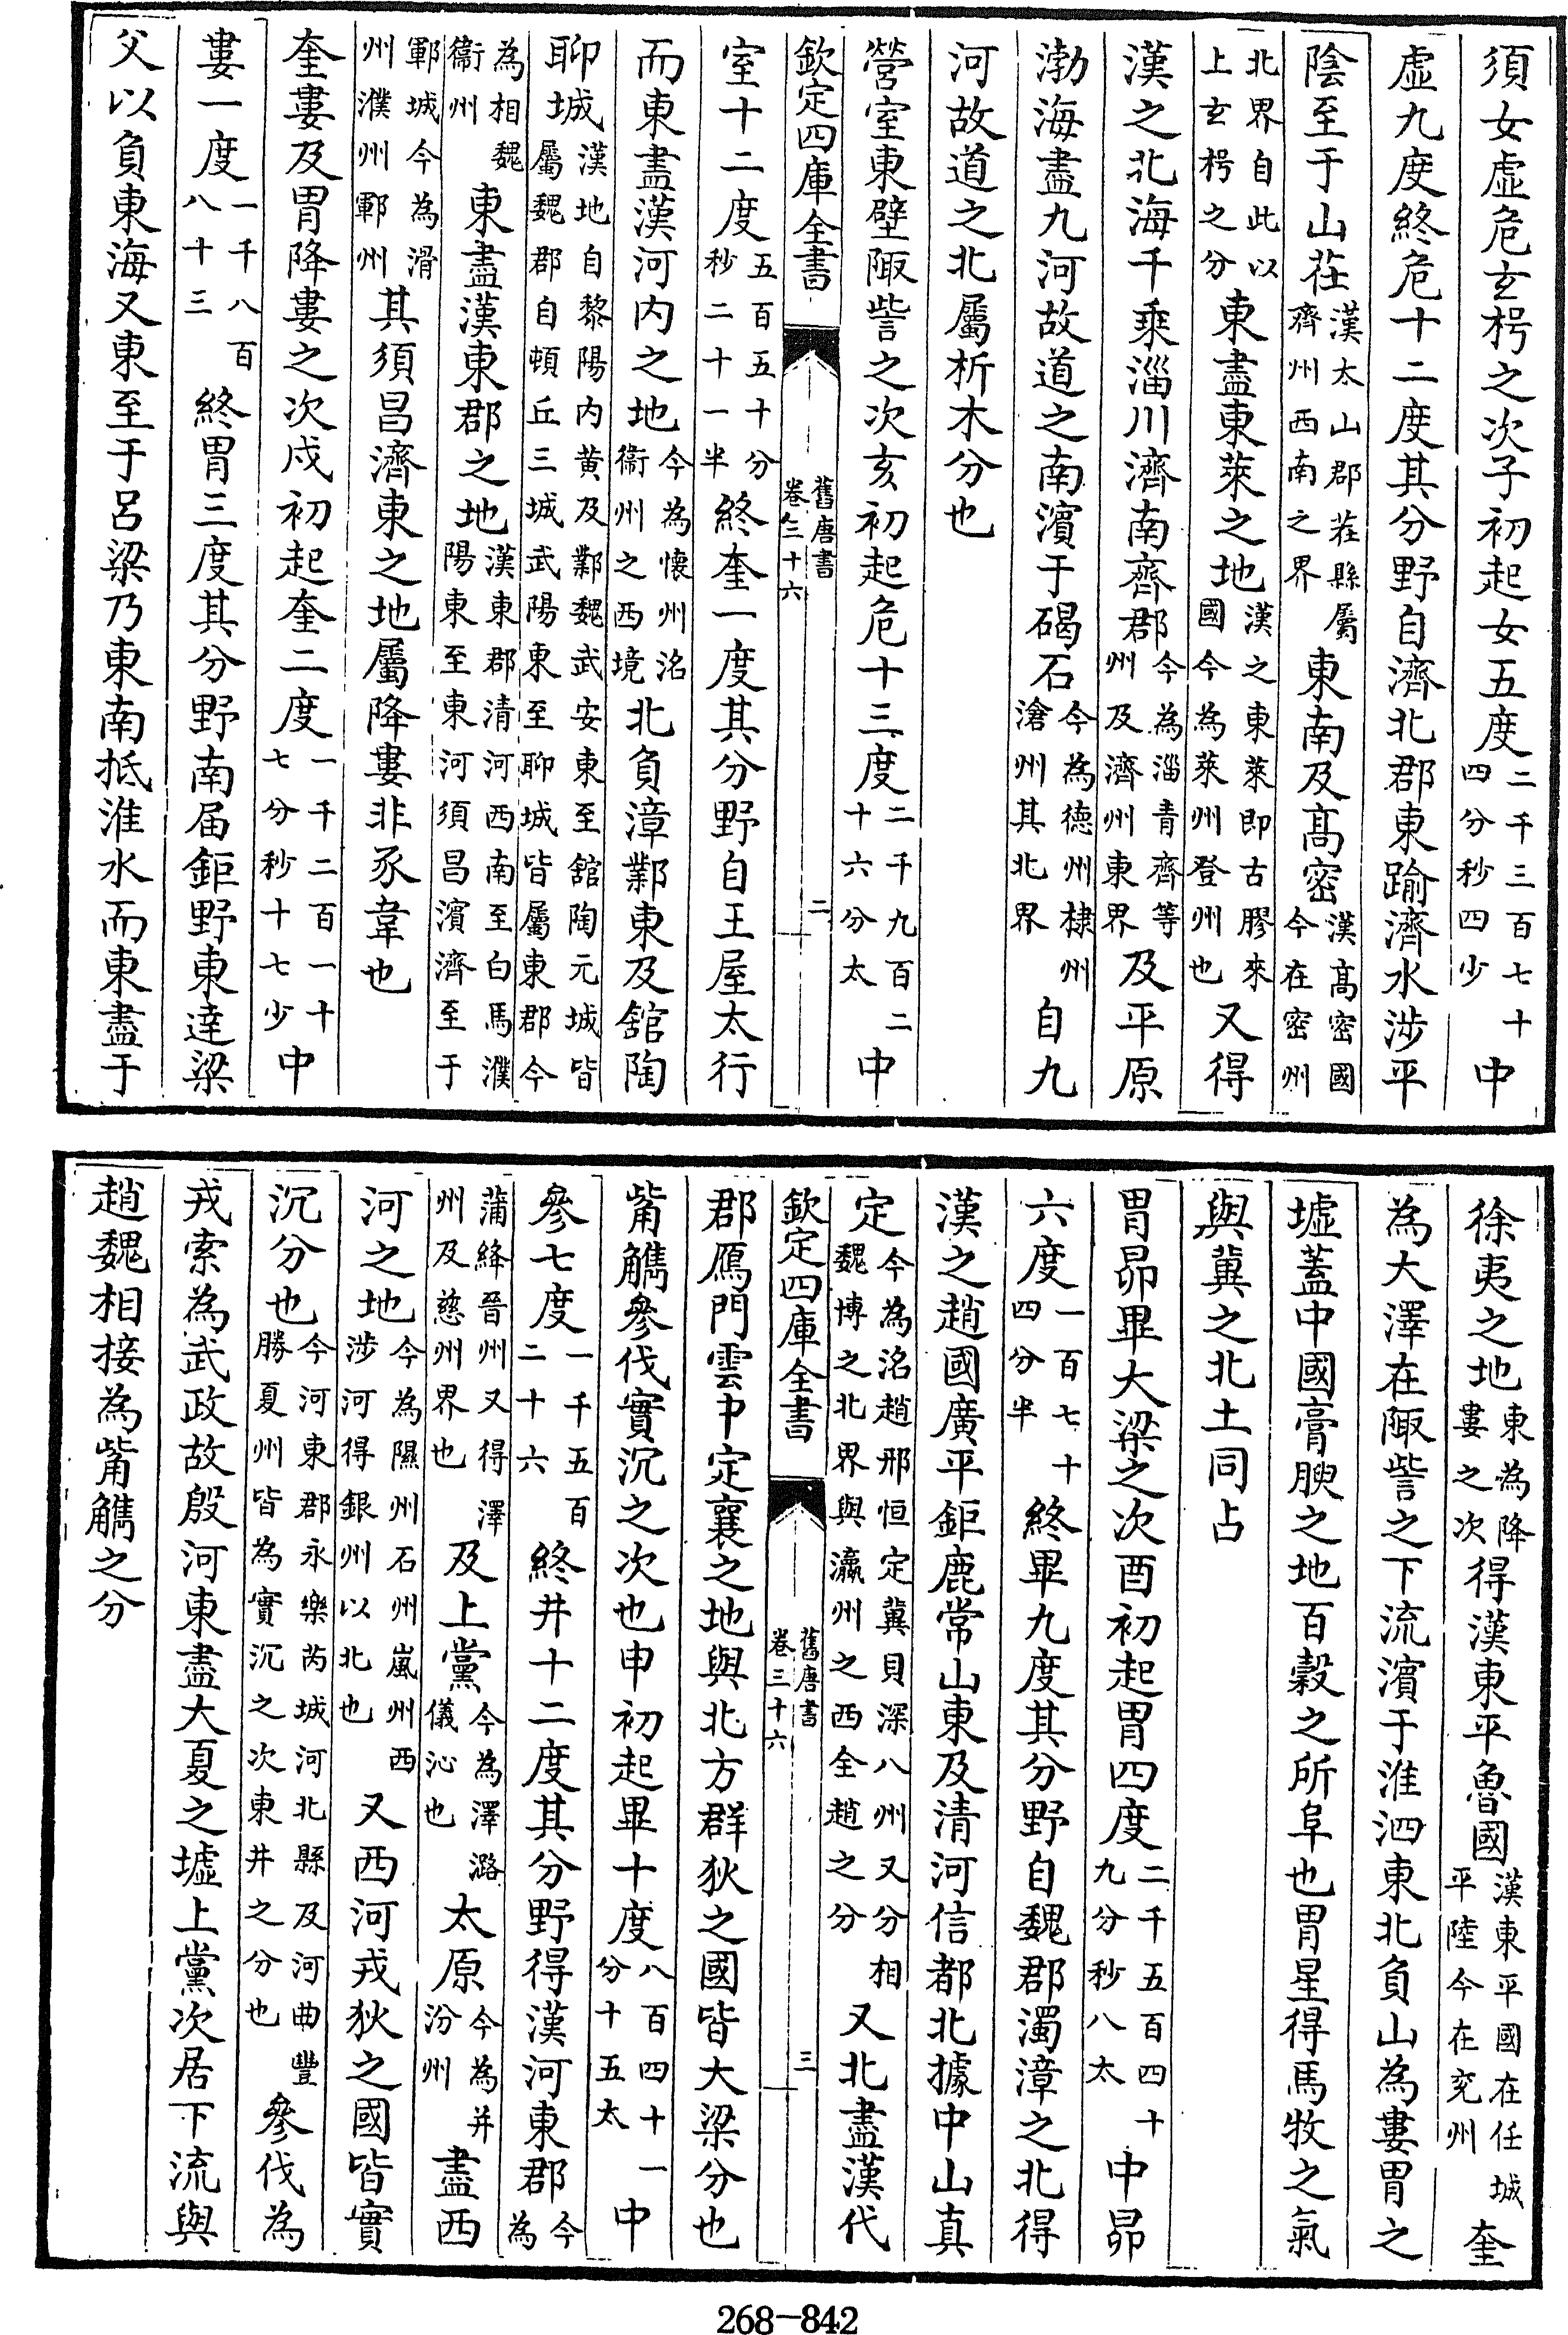 須女虛危玄枵之次子初起女五度二千三百七十四分秒四少中
虛九度終危十二度其分野自濟北郡東踰濟水涉平
陰至于山茌漢太山郡茌縣屬齊州西南之界東南及髙密漢髙密國今在密州
北界自此以上玄枵之分東盡東萊之地漢之東萊即古膠來國今為萊州登州也又得
漢之北海千乘淄川濟南齊郡今為淄青齊等州及濟州東界及平原
渤海盡九河故道之南濵于碣石今為德州棣州滄州其北界自九
河故道之北屬析木分也
營室東壁陬訾之次亥初起危十三度二千九百二十六分太中
欽定四庫全書
舊唐書
卷三十六
二
室十二度五百五十分秒二十一半終奎一度其分野自王屋太行
而東盡漢河内之地今為懐州洺衞州之西境北負漳鄴東及舘陶
聊城漢地自黎陽内黃及鄴魏武安東至舘陶元城皆屬魏郡自頓丘三城武陽東至聊城皆屬東郡今
為相魏衞州東盡漢東郡之地漢東郡清河西南至白馬濮陽東至東河須昌濵濟至于
鄆城今為滑州濮州鄆州其須昌濟東之地屬降婁非豕韋也
奎婁及胃降婁之次戍初起奎二度一千二百一十七分秒十七少中
婁一度一千八百八十三終胃三度其分野南届鉅野東達梁
父以負東海又東至于呂梁乃東南抵淮水而東盡于
徐夷之地東為降婁之次得漢東平魯國漢東平國在任城平陸今在兖州奎
為大澤在陬訾之下流濵于淮泗東北負山為婁胃之
墟蓋中國膏腴之地百穀之所阜也胃星得馬牧之氣
與冀之北土同占
胃昴畢大梁之次酉初起胃四度二千五百四十九分秒八太中昴
六度一百七十四分半終畢九度其分野自魏郡濁漳之北得
漢之趙國廣平鉅鹿常山東及清河信都北據中山真
定今為洺趙邢恒定冀貝深八州又分相魏博之北界與瀛州之西全趙之分又北盡漢代
欽定四庫全書
舊唐書
卷三十六
三
郡鴈門雲中定襄之地與北方群狄之國皆大梁分也
觜觿參伐實沉之次也申初起畢十度八百四十一分十五太中
參七度一千五百二十六終井十二度其分野得漢河東郡今為
蒲絳晉州又得澤州及慈州界也及上黨今為澤潞儀沁也太原今為并汾州盡西
河之地今為隰州石州嵐州西涉河得銀州以北也又西河戎狄之國皆實
沉分也今河東郡永樂芮城河北縣及河曲豐勝夏州皆為實沉之次東井之分也參伐為
戎索為武政故殷河東盡大夏之墟上黨次居下流與
趙魏相接為觜觿之分
268-842